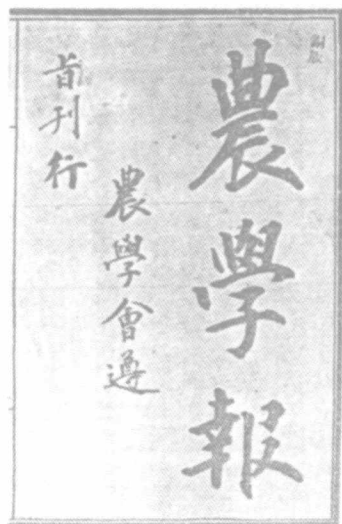 農學報
農學會遵
旨刊行